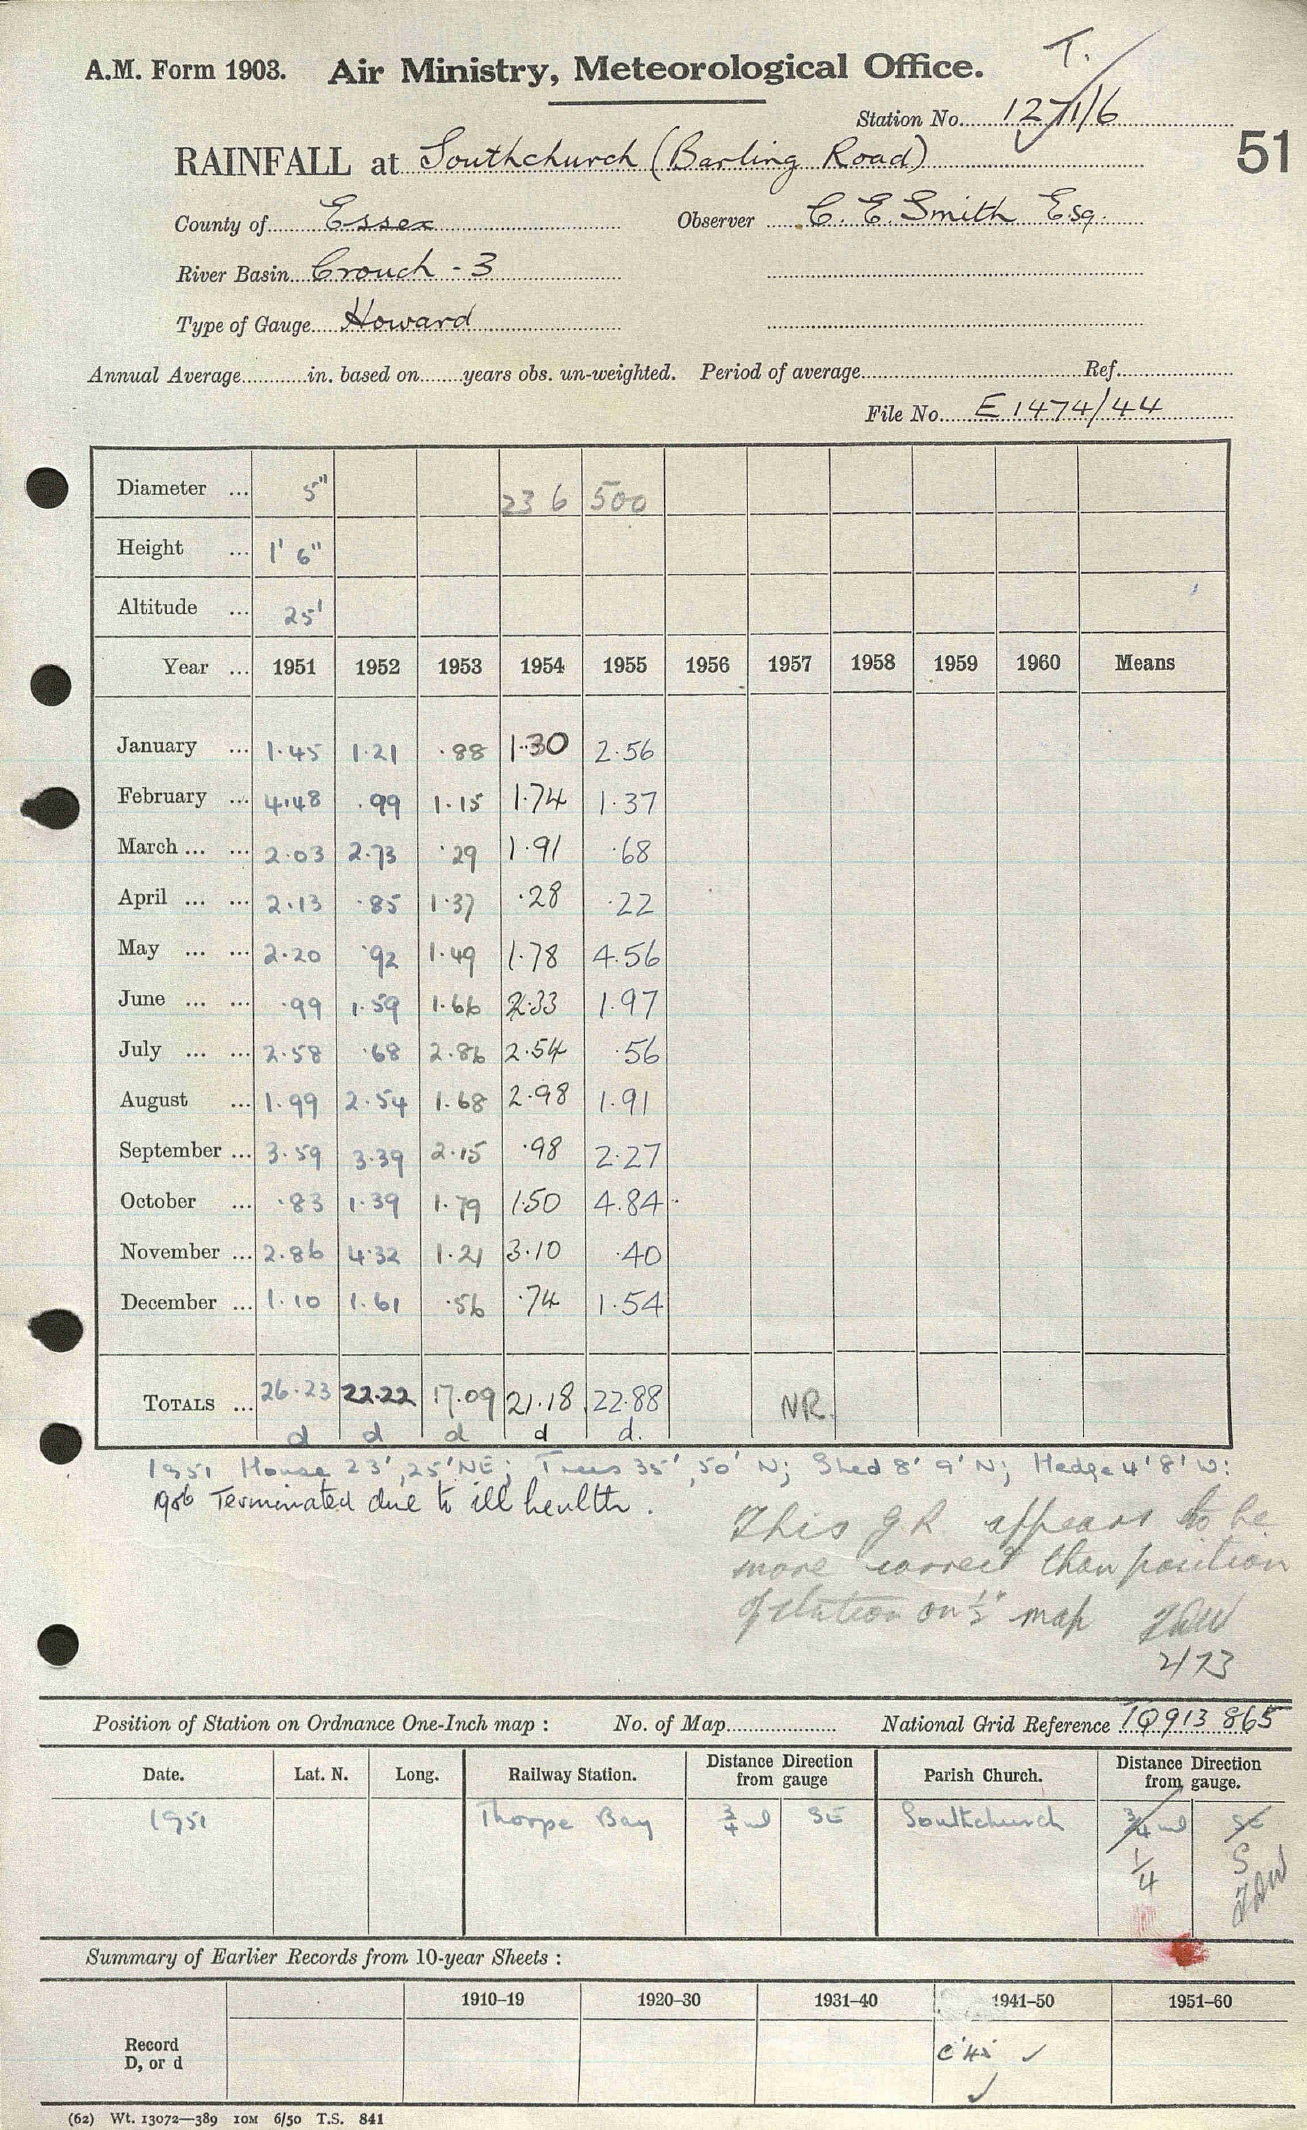 T.
A.M. Form 1903. Air Ministry, Meteorological Office.
Station No. 1271/6
51
RAINFALL at Southchurch (Barling Road)
County of Essex Observer C. E. Smith Esq.
River Basin Crouch - 3
Type of Gauge Howard
Annual Average in. based on years obs. un-weighted. Period of average Ref.
File No. E 1474/44
Diameter ... 5" 23 6 500
Height ... 1' 6"
Altitude ... 25'
Year ... 1951 1952 1953 1954 1955 1956 1957 1958 1959 1960 Means
January ... 1.45 1.21 .88 1.30 2.56
February ... 4.48 .99 1.15 1.74 1.37
March ... ... 2.03 2.73 .29 1.91 .68
April ... ... 2.13 .85 1.37 .28 .22
May ... ... 2.20 .92 1.49 1.78 4.56
June ... ... .99 1.59 1.66 2.33 1.97
July ... ... 2.58 .68 2.86 2.54 .56
August ... 1.99 2.54 1.68 2.98 1.91
September ... 3.59 3.39 2.15 .98 2.27
October ... .83 1.39 1.79 1.50 4.84
November ... 2.86 4.32 1.21 3.10 .40
December ... 1.10 1.61 .56 .74 1.54
TOTALS ... 26.23 22.22 17.09 21.18 22.88 NR.
d d d d d.
1951 House 23', 25' NE; Trees 35', 50' N; Shed 8' 9' N; Hedge 4' 8' W:
1956 Terminated due to ill health.
This G.R. appears to be
more correct than position
of station on ½" map
2/73
Position of Station on Ordnance One-Inch map : No. of Map National Grid Reference TQ 913 865
Date. Lat. N. Long. Railway Station. Distance Direction from gauge Parish Church. Distance Direction from gauge.
1951 Thorpe Bay ¾ ml SE Southchurch ¾ ml SE
¼ S
Summary of Earlier Records from 10-year Sheets :
1910–19 1920–30 1931–40 1941–50 1951–60
Record
D, or d
C'45 ✓
✓
(62) Wt. 13072—389 10M 6/50 T.S. 841